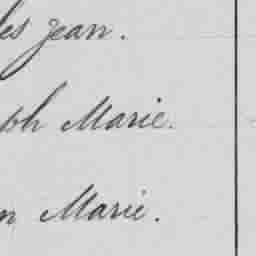 les Jean.
ph Marie.
n Marie.